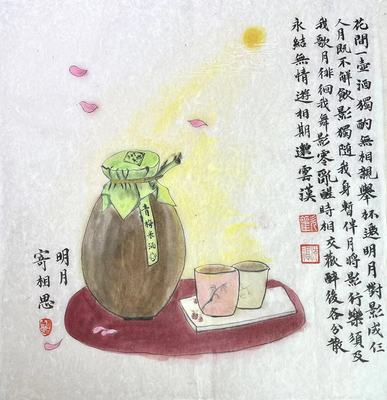 花間一壺酒獨酌無相親舉杯邀明月對影成仨
人月既不解飲影獨隨我身暫伴月將影行樂須及
我歌月徘徊我舞影零亂醒時相交歡醉後各分散
永結無情遊相期邈雲漢
青梅米酒
明月
寄相思